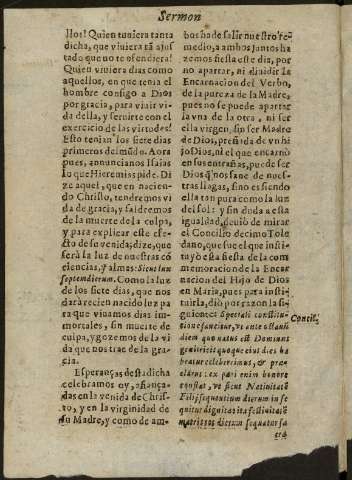 Sermon
llos! Quien tuuiera tanta
dicha, que viuiera tã ajus
tado que no te ofendiera!
Quien viuiera dias como
aquellos, en que tenia el
hombre consigo a Dios
por gracia, para viuir vi-
da della, y seruirte con el
exercicio de las virtudes!
Esto tenian los siete dias
primeros del mũdo. Aora
pues, anuncianos Isaias
lo que Hieremias pide. Di
ze aquel, que en nacien-
do Christo, tendremos vi
da de gracia, y saldremos
de la muerte de la culpa,
y para explicar este efe-
cto de su venida; dize, que
será la luz de nuestras cõ
ciencias, y almas: Sicut lux
septem dierum. Como la luz
de los siete dias, que nos
dará recien nacido luz pa
ra que viuamos dias im-
mortales, sin muerte de
culpa, y gozemos de la vi
da que nos trae de la gra-
cia.
Esperanças desta dicha
celebramos oy, afiança-
das en la venida de Chris-
to, y en la virginidad de
su Madre, y como de am-
bos ha de salir nuestro re-
medio, a ambos juntos ha
zemos fiesta este dia, por
no apartar, ni diuidir la
Encarnacion del Verbo,
de la pureza de la Madre,
pues no se puede apartar
la vna de la otra, ni ser
ella virgen, sin ser Madre
de Dios, preñada de vn hi
jo Dios, ni el que encarnò
en sus entrañas, puede ser
Dios q̃ nos sane de nues-
tras llagas, sino es siendo
ella tan pura como la luz
del sol: y sin duda a esta
igualdad, deuiò de mirar
el Concilio decimo Tole
dano, que fue el que insti-
tuyò esta fiesta de la com
memoracion de la Encar
nacion del Hijo de Dios
en Maria, pues para insti-
tuirla, diò por razon la si-
guiente: Speciali constitu-
tione sancitur, vt ante octauũ
diem quo natus est Dominus
genitricis quoque eius dies ha
beatur celeberrimus, & præ-
clarus: ex pari enim honore
constat, vt sicut Natiuitatẽ
Filij sequentium dierum in se
quitur dignitas ita festiuitatẽ
matris tot dierum sequatur sa
cra
Concil.